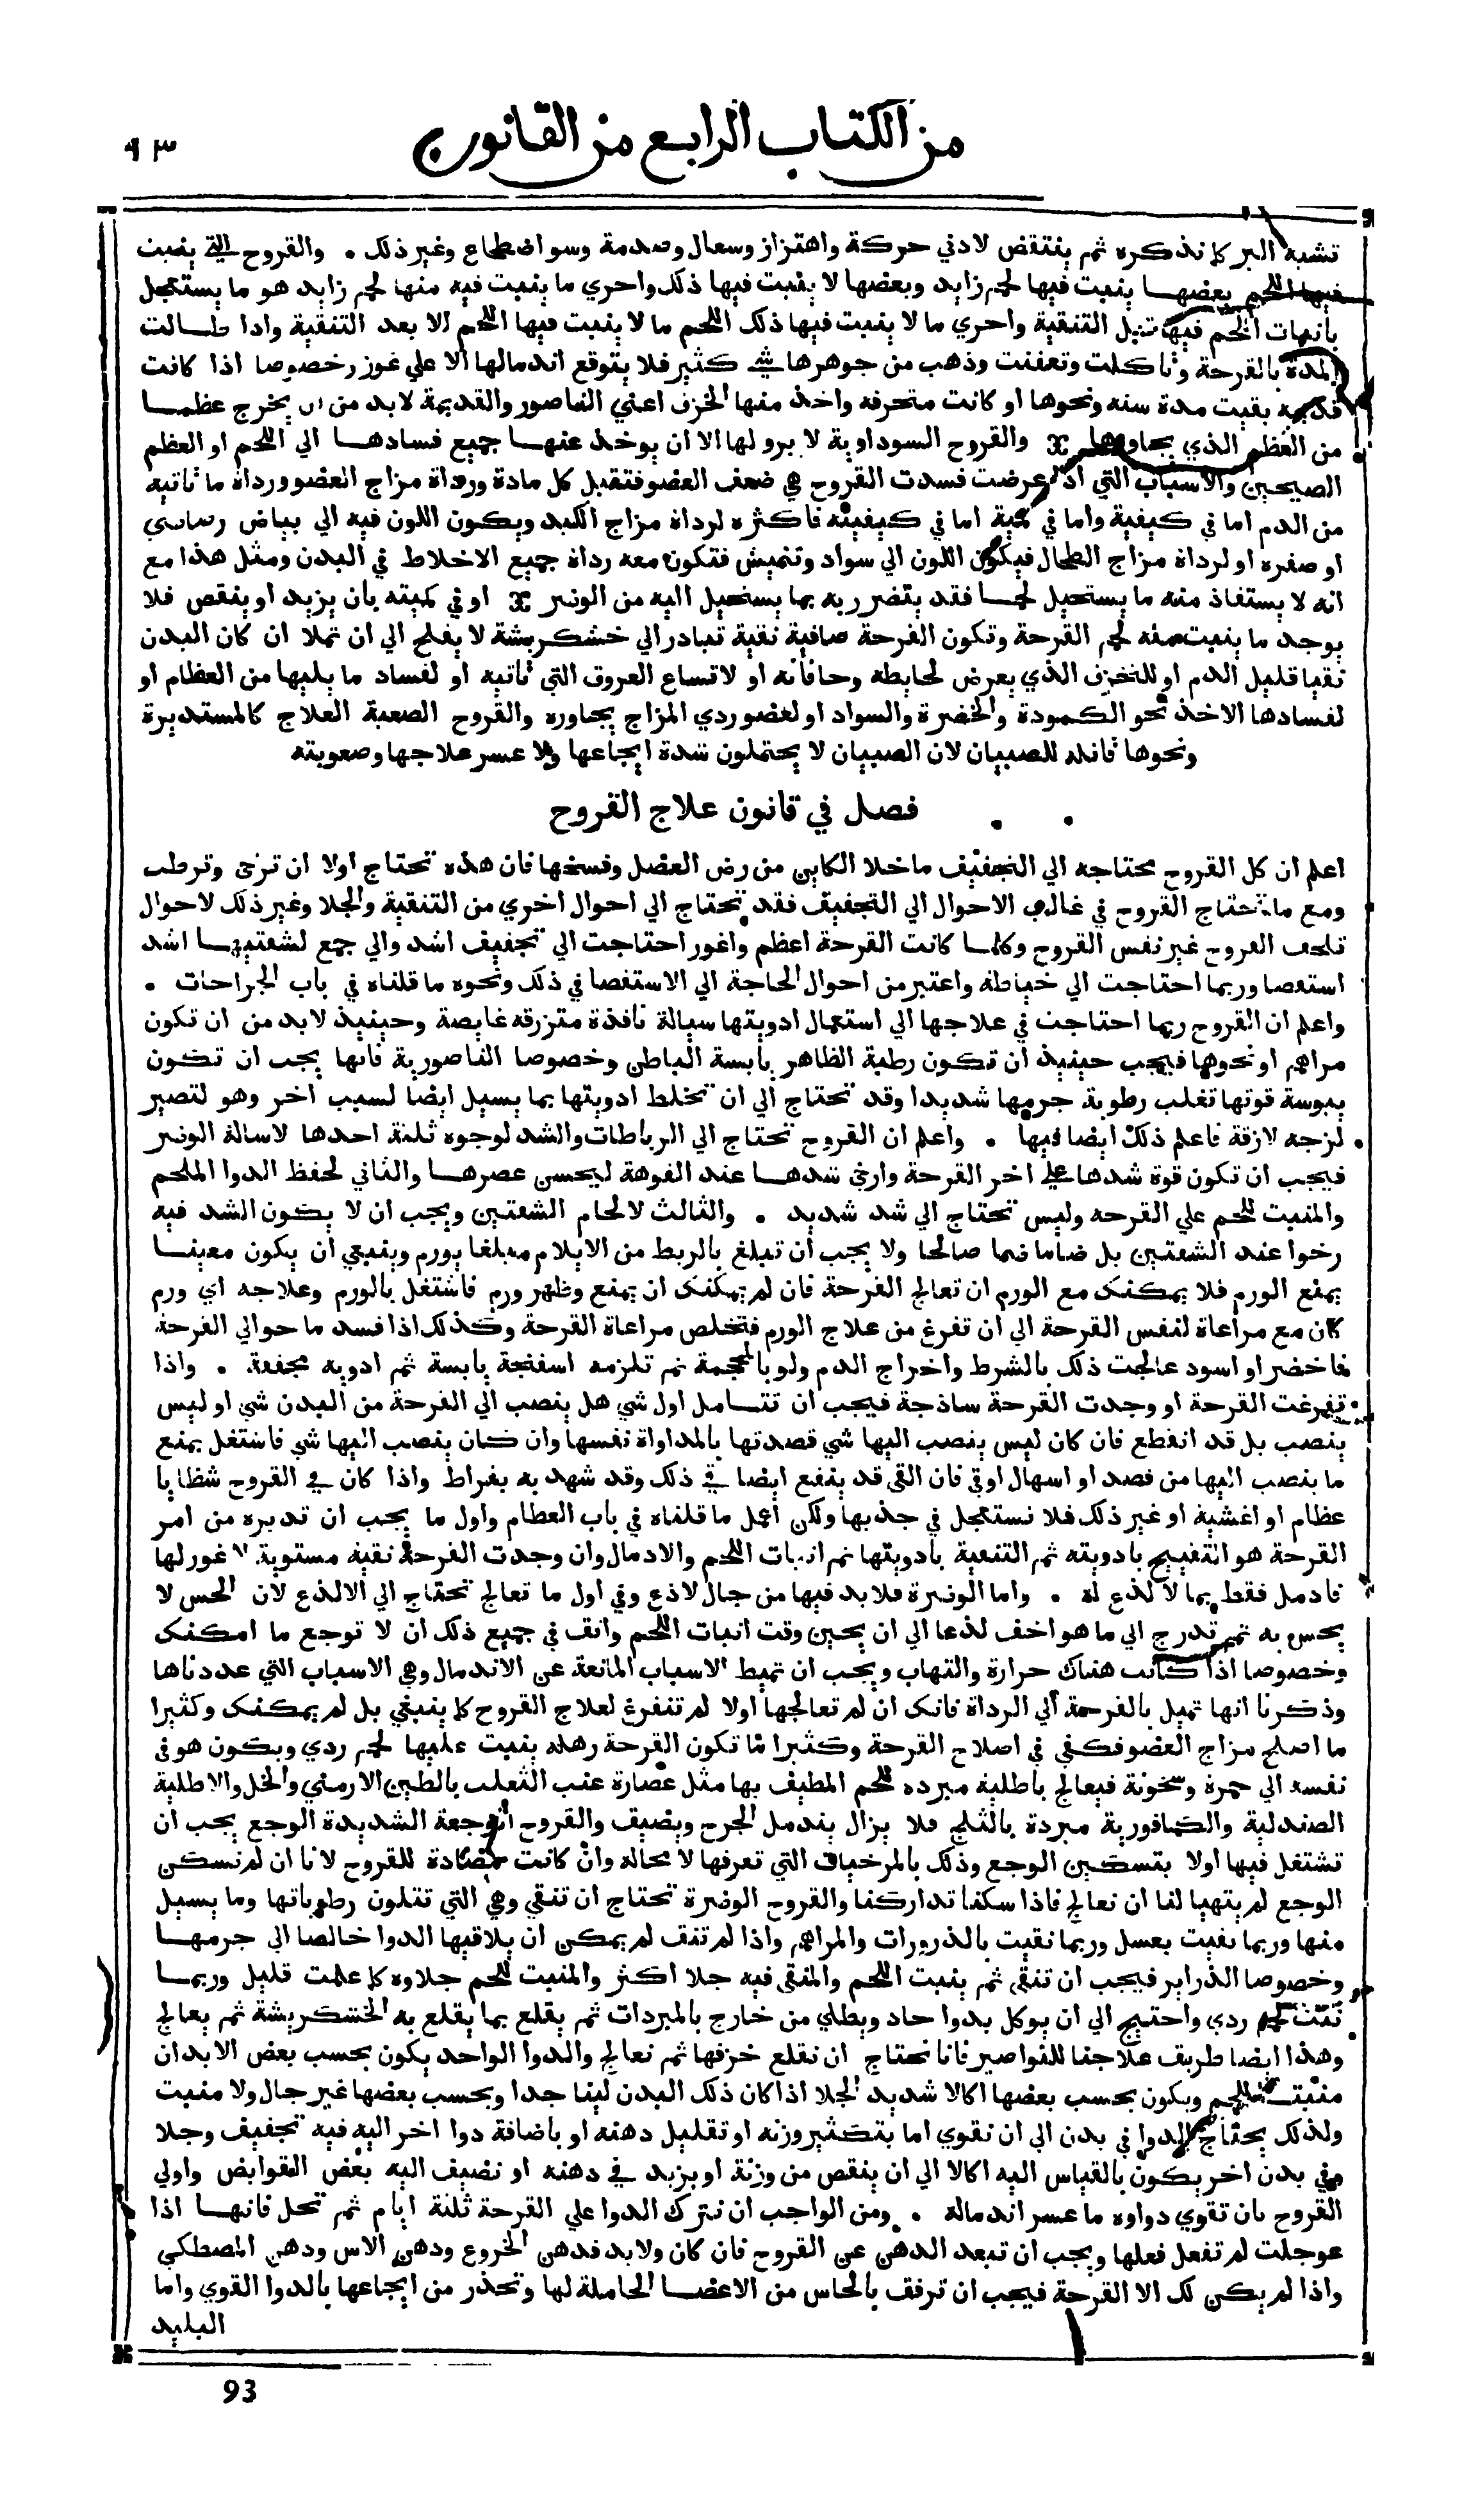 من الكتاب الرابع من القانون
٩٣
تشبه البر كما نذكره ثم ينتقض لادني حركة واهتزاز وسعال وصدمة وسو اضطجاع وغير ذلك . والقروح التي ينبت
فيها اللحم بعضها ينبت فيها لحم زايد وبعضها لا ينبت فيها ذلك واحري ما ينبت فيه منها لحم زايد هو ما يستعجل
بانبات اللحم فيها قبل التنقية واحري ما لا ينبت فيها ذلك اللحم ما لا ينبت فيها اللحم الا بعد التنقية واذا طالت
المدة بالقرحة وتاكلت وتعفنت وذهب من جوهرها شي كثير فلا يتوقع اندمالها الا علي غور وخصوصا اذا كانت
قديمة بقيت مدة سنه ونحوها او كانت متحرفه واخذ منها الخزف اعني النواصور والقديمة لا بد من ان يخرج عظما
من العظم الذي يجاورها x والقروح السوداوية لا برو لها الا ان يوخذ عنها جميع فسادها الي اللحم او العظم
الصيحيين والاسباب التي اذا عرضت فسدت القروح هي ضعف العضو فتقبل كل مادة ورداة مزاج العضو ورداة ما ناتيه
من الدم اما في كيفية واما في كمية اما في كيفيته فاكثره لرداة مزاج الكبد ويكون اللون فيه الي بياض رصاصي
او صفره او لرداة مزاج الطحال فيكون اللون الي سواد وتنميش فتكون معه رداة جميع الاخلاط في البدن ومثل هذا مع
انه لا يستفاد منه ما يستحيل لحما فقد يتضرر به بما يستحيل اليه من الوضر x او في كميته بان يزيد او ينقص فلا
يوجد ما ينبت منه لحم القرحة وتكون القرحة صافية نقية تبادر الي خشكريشة لا يفلح الي ان تملا ان كان البدن
نقيا قليل الدم او للتخزف الذي يعرض لحايطه وحافاته او لاتساع العروق التي تاتيه او لفساد ما يليها من العظام او
لفسادها الاخذ نحو الكمودة والخضرة والسواد او لعضو ردي المزاج يجاوره والقروح الصعبة العلاج كالمستديرة
ونحوها قاتله للصبيان لان الصبيان لا يحتملون شدة ايجاعها ولا عسر علاجها وصعوبته
فصل في قانون علاج القروح
اعلم ان كل القروح محتاجه الي التجفيف ما خلا الكاين من رض العضل وفسخها فان هذه تحتاج اولا ان ترخى وترطب
ومع ما تحتاج القروح في غالب الاحوال الي التجفيف فقد تحتاج الي احوال اخري من التنقية والجلا وغير ذلك لاحوال
تلحق القروح غير نفس القروح وكلما كانت القرحة اعظم واغور احتاجت الي تجفيف اشد والي جمع لشفتيها اشد
استقصا وربما احتاجت الي خياطة واعتبر من احوال الحاجة الي الاستقصا في ذلك ونحوه ما قلناه في باب الجراحات .
واعلم ان القروح ربما احتاجت في علاجها الي استعمال ادويتها سيالة نافذة متزرقه غايصة وحينيذ لا بد من ان تكون
مراهم او نحوها فيجب حينيذ ان تكون رطبة الظاهر يابسة الباطن وخصوصا الناصورية فانها يجب ان تكون
يبوسة قوتها تغلب رطوبة جرمها شديدا وقد تحتاج الي ان تخلط ادويتها بما يسيل ايضا لسبب اخر وهو لتصير
لزجه لازقة فاعلم ذلك ايضا فيها . واعلم ان القروح تحتاج الي الرباطات والشد لوجوه ثلثة احدها لاسالة الوضر
فيجب ان تكون قوة شدها علي اخر القرحة وارخي شدها عند الفوهة ليحسن عصرها والثاني لحفظ الدوا الملحم
والمنبت للحم علي القرحه وليس تحتاج الي شد شديد . والثالث لالحام الشفتين ويجب ان لا يكون الشد فيه
رخوا عند الشفتين بل ضاما ضما صالحا ولا يجب ان تبلغ بالربط من الايلام مبلغا يورم وينبغي ان يكون معينا
يمنع الورم فلا يمكنك مع الورم ان تعالج القرحة فان لم يمكنك ان يمنع وظهر ورم فاشتغل بالورم وعلاجه اي ورم
كان مع مراعاة لنفس القرحة الي ان تفرغ من علاج الورم فتخلص مراعاة القرحة وكذلك اذا فسد ما حوالي القرحة
فاخضر او اسود عالجت ذلك بالشرط واخراج الدم ولو بالمحجمة ثم تلزمه اسفنجة يابسة ثم ادويه مجففة . واذا
تفرغت القرحة او وجدت القرحة ساذجة فيجب ان تتامل اول شي هل ينصب الي القرحة من البدن شي او ليس
ينصب بل قد انقطع فان كان ليس ينصب اليها شي قصدتها بالمداواة نفسها وان كان ينصب اليها شي فاشتغل بمنع
ما ينصب اليها من فصد او اسهال او قي فان القي قد ينفع ايضا في ذلك وقد شهد به بقراط واذا كان في القروح شظايا
عظام او اغشية او غير ذلك فلا نستعجل في جذبها ولكن اعمل ما قلناه في باب العظام واول ما يجب ان تدبره من امر
القرحة هو التقييح بادويته ثم التنقية بادويتها ثم انبات اللحم والادمال وان وجدت القرحة نقية مستوية لا غور لها
فادمل فقط بما لا لذع له . واما الوضرة فلا بد فيها من جال لاذع وفي اول ما تعالج تحتاج الي الالذع لان الحس لا
يحس به ثم تدرج الي ما هو اخف لذعا الي ان يحين وقت انبات اللحم واتق في جميع ذلك ان لا توجع ما امكنك
وخصوصا اذا كانت هناك حرارة والتهاب ويجب ان تميط الاسباب المانعة عن الاندمال وهي الاسباب التي عددناها
وذكرنا انها تميل بالقرحة الي الرداة فانك ان لم تعالجها اولا لم تتفرغ لعلاج القروح كما ينبغي بل لم يمكنك وكثيرا
ما اصلح مزاج العضو فكفي في اصلاح القرحة وكثيرا ما تكون القرحة رهله ينبت عليها لحم ردي ويكون هو في
نفسه الي حمرة وسخونة فيعالج باطلية مبرده للحم المطيف بها مثل عصارة عنب الثعلب بالطين الارمني والخل والاطلية
الصندلية والكافورية مبردة بالثلج فلا يزال يندمل الجرح ويضيق والقروح الوجعة الشديدة الوجع يجب ان
تشتغل فيها اولا بتسكين الوجع وذلك بالمرخيات التي تعرفها لا محالة وان كانت مضادة للقروح لانا ان لم نسكن
الوجع لم يتهيا لنا ان نعالج فاذا سكنا تداركنا والقروح الوضرة تحتاج ان تنقي وهي التي تتلون رطوباتها وما يسيل
منها وربما نقيت بعسل وربما نقيت بالذرورات والمراهم واذا لم تنق لم يمكن ان يلاقيها الدوا خالصا الي جرمها
وخصوصا الذراير فيجب ان تنقى ثم ينبت اللحم والمنقى فيه جلا اكثر والمنبت للحم جلاوه كما علمت قليل وربما
نبت لحم ردي واحتيج الي ان يوكل بدوا حاد ويطلي من خارج بالمبردات ثم يقلع بما يقلع به الخشكريشة ثم يعالج
وهذا ايضا طريق علاجنا للنواصير فانا نحتاج ان نقلع خزفها ثم نعالج والدوا الواحد يكون بحسب بعض الابدان
منبتا للحم ويكون بحسب بعضها اكالا شديد الجلا اذا كان ذلك البدن لينا جدا وبحسب بعضها غير جال ولا منبت
ولذلك يحتاج الدوا في بدن الي ان نقوي اما بتكثير وزنه او تقليل دهنه او باضافة دوا اخر اليه فيه تجفيف وجلا
وفي بدن اخر يكون بالقياس اليه اكالا الي ان ينقص من وزنة او يزيد في دهنه او نضيف اليه بعض القوابض واولي
القروح بان تقوي دواوه ما عسر اندماله . ومن الواجب ان نترك الدوا علي القرحة ثلثة ايام ثم تحل فانها اذا
عوجلت لم تفعل فعلها ويجب ان تبعد الدهن عن القروح فان كان ولا بد فدهن الخروع ودهن الاس ودهن المصطكي
واذا لم يكن لك الا القرحة فيجب ان ترفق بالحاس من الاعضا الحاملة لها وتحذر من ايجاعها بالدوا القوي واما
البليد
93